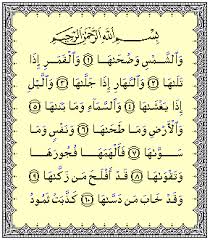 بِسْمِ ٱللَّهِ ٱلرَّحْمَـٰنِ ٱلرَّحِيمِ
وَٱلشَّمْسِ وَضُحَىٰهَا ١ وَٱلْقَمَرِ إِذَا
تَلَىٰهَا ٢ وَٱلنَّهَارِ إِذَا جَلَّىٰهَا ٣ وَٱلَّيْلِ
إِذَا يَغْشَىٰهَا ٤ وَٱلسَّمَآءِ وَمَا بَنَىٰهَا ٥
وَٱلْأَرْضِ وَمَا طَحَىٰهَا ٦ وَنَفْسٍ وَمَا
سَوَّىٰهَا ٧ فَأَلْهَمَهَا فُجُورَهَا
وَتَقْوَىٰهَا ٨ قَدْ أَفْلَحَ مَن زَكَّىٰهَا ٩
وَقَدْ خَابَ مَن دَسَّىٰهَا ١٠ كَذَّبَتْ ثَمُودُ